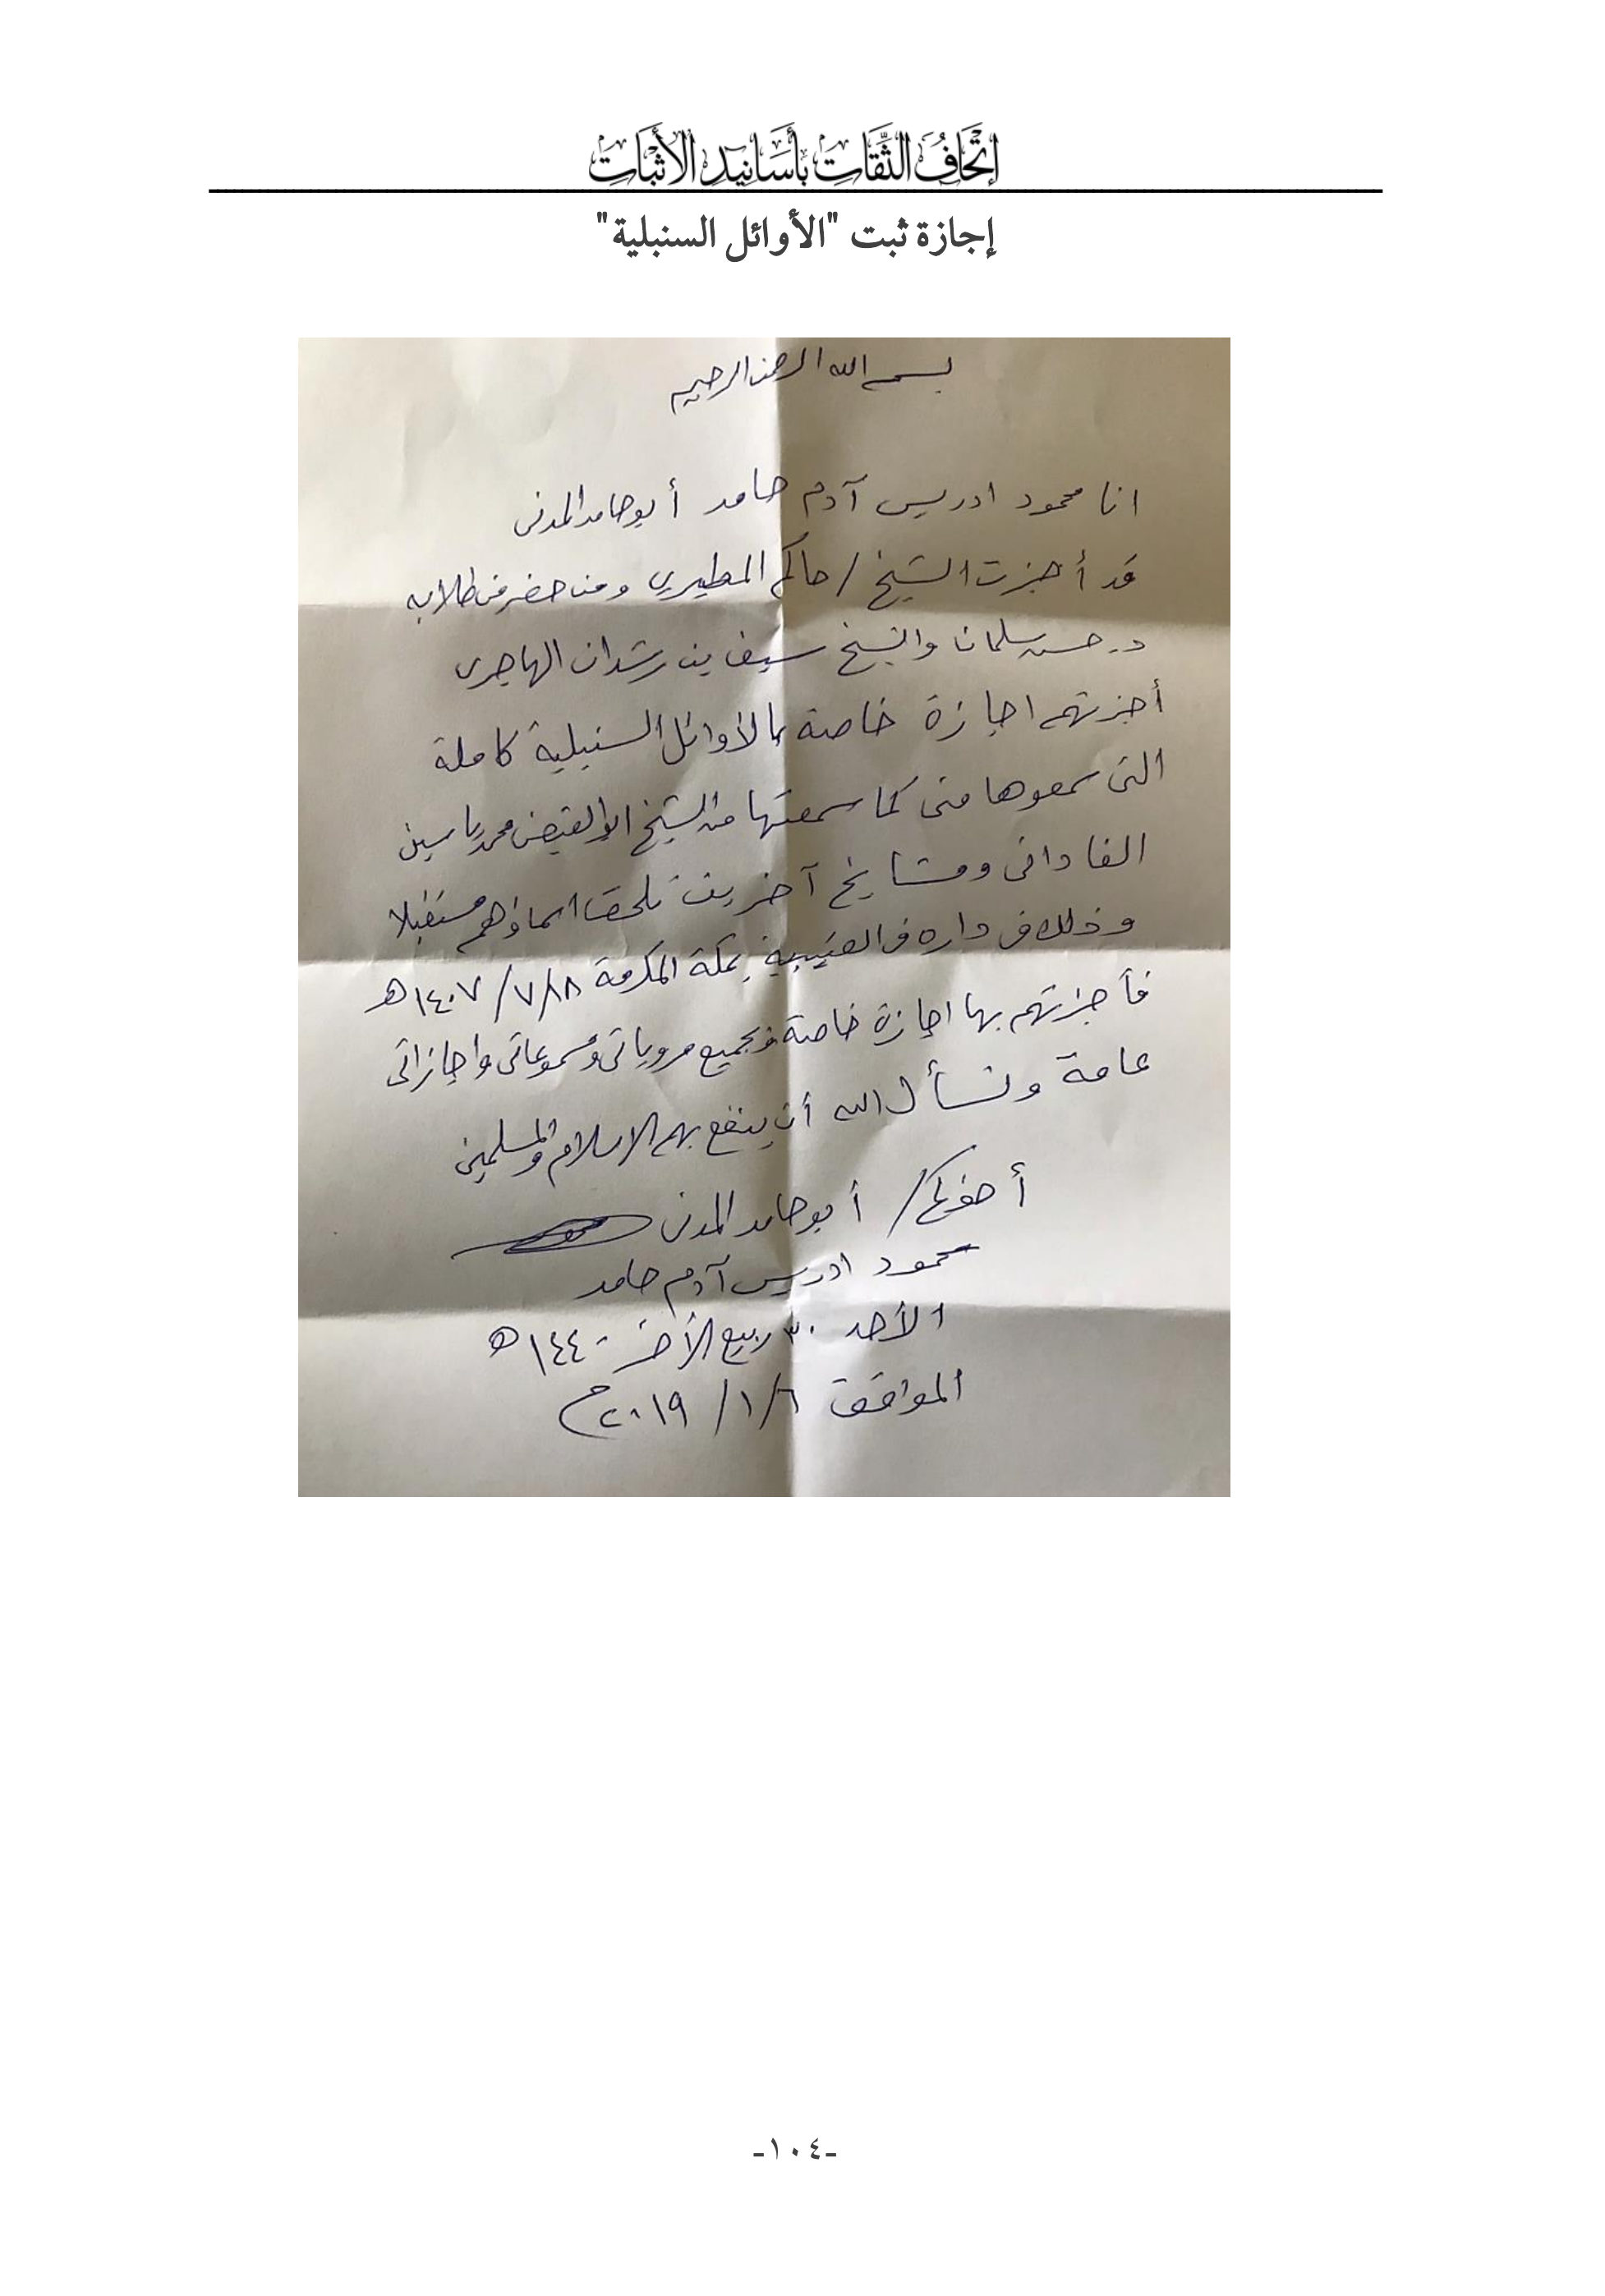 إِتْحَافُ الثِّقَاتِ بِأَسَانِيدِ الأَثْبَاتِ
إجازة ثبت "الأوائل السنبلية"
بسم الله الرحمن الرحيم
انا محمود ادريس آدم حامد أبو حامد المدنى
قد أجزت الشيخ / حاكم المطيري ومن حضر من طلابه
د. حسن سلمان والشيخ سيف بن رشدان الهاجرى
أجزتهم اجازة خاصة بالأوائل السنبلية كاملة
التى سمعوها منى كما سمعتها من الشيخ ابو الفيض محمد ياسين
الفادانى ومشايخ آخرين تلحق اسماؤهم مستقبلا
وذلك فى داره فى العتيبية بمكة المكرمة ١٨/٧/١٤٠٧هـ
فأجزتهم بها اجازة خاصة وبجميع مروياتى ومسموعاتى واجازاتى
عامة ونسأل الله أن ينفع بهم الاسلام والمسلمين
أخوكم / أبو حامد المدنى
محمود ادريس آدم حامد
الأحد ٣٠ ربيع الأخر ١٤٤٠هـ
الموافق ٦/١/٢٠١٩م
-١٠٤-